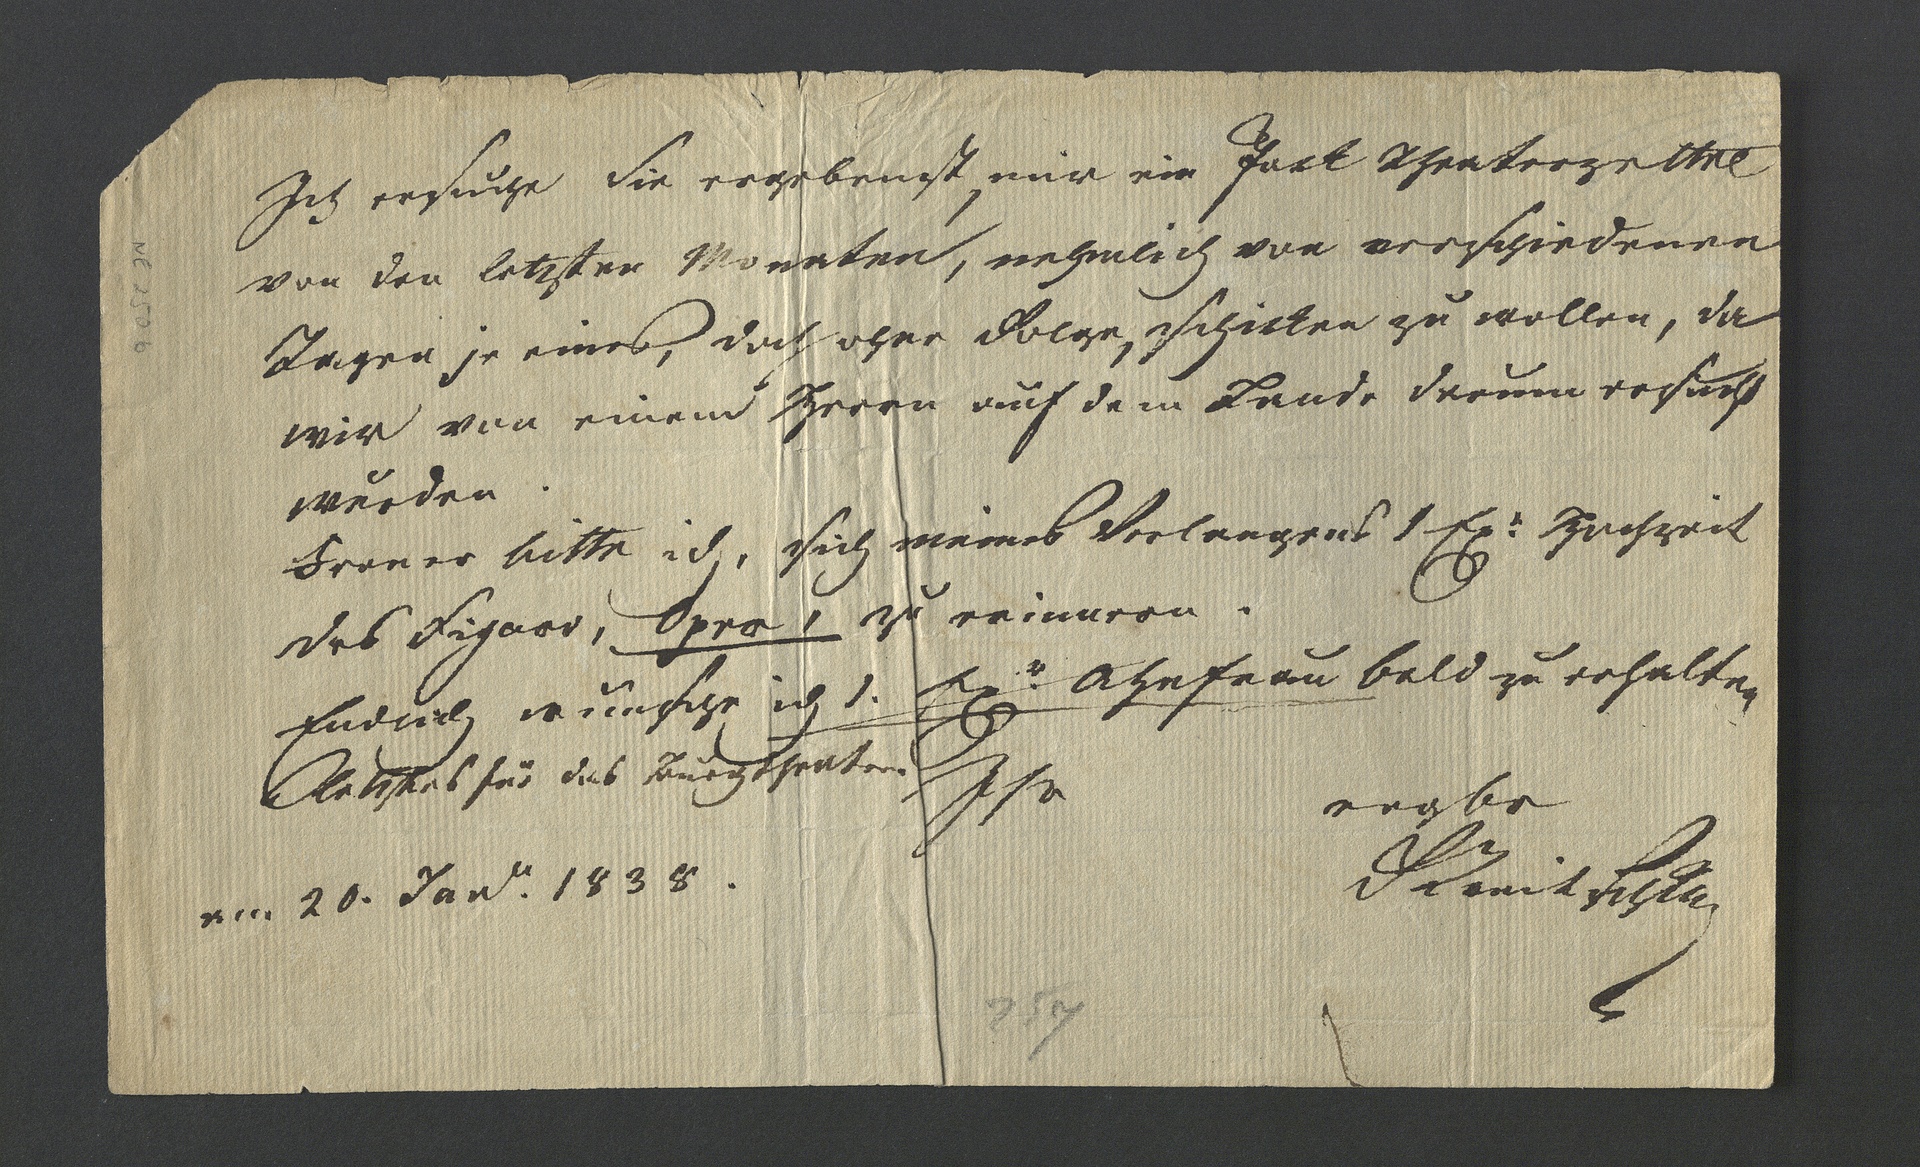 Ich ersuche Sie ergebenst, mir ein Pack Theaterzettel
von den letzten Monaten, nehmlich von verschiedenen
Tagen je eines, doch ohne Folge, schicken zu wollen, da
wir von einem Herrn auf dem Lande darum ersucht
wurden.
Ferner bitte ich, sich meines Verlangens 1 Ex: Hochzeit
des Figaro, Oper, zu erinnern.
Endlich wünsche ich 1. Ex: Ahnfrau bald zu erhalten
Letztes für das Burgtheater.
Ihr
ergbr
am 20. Janr. 1838.
757